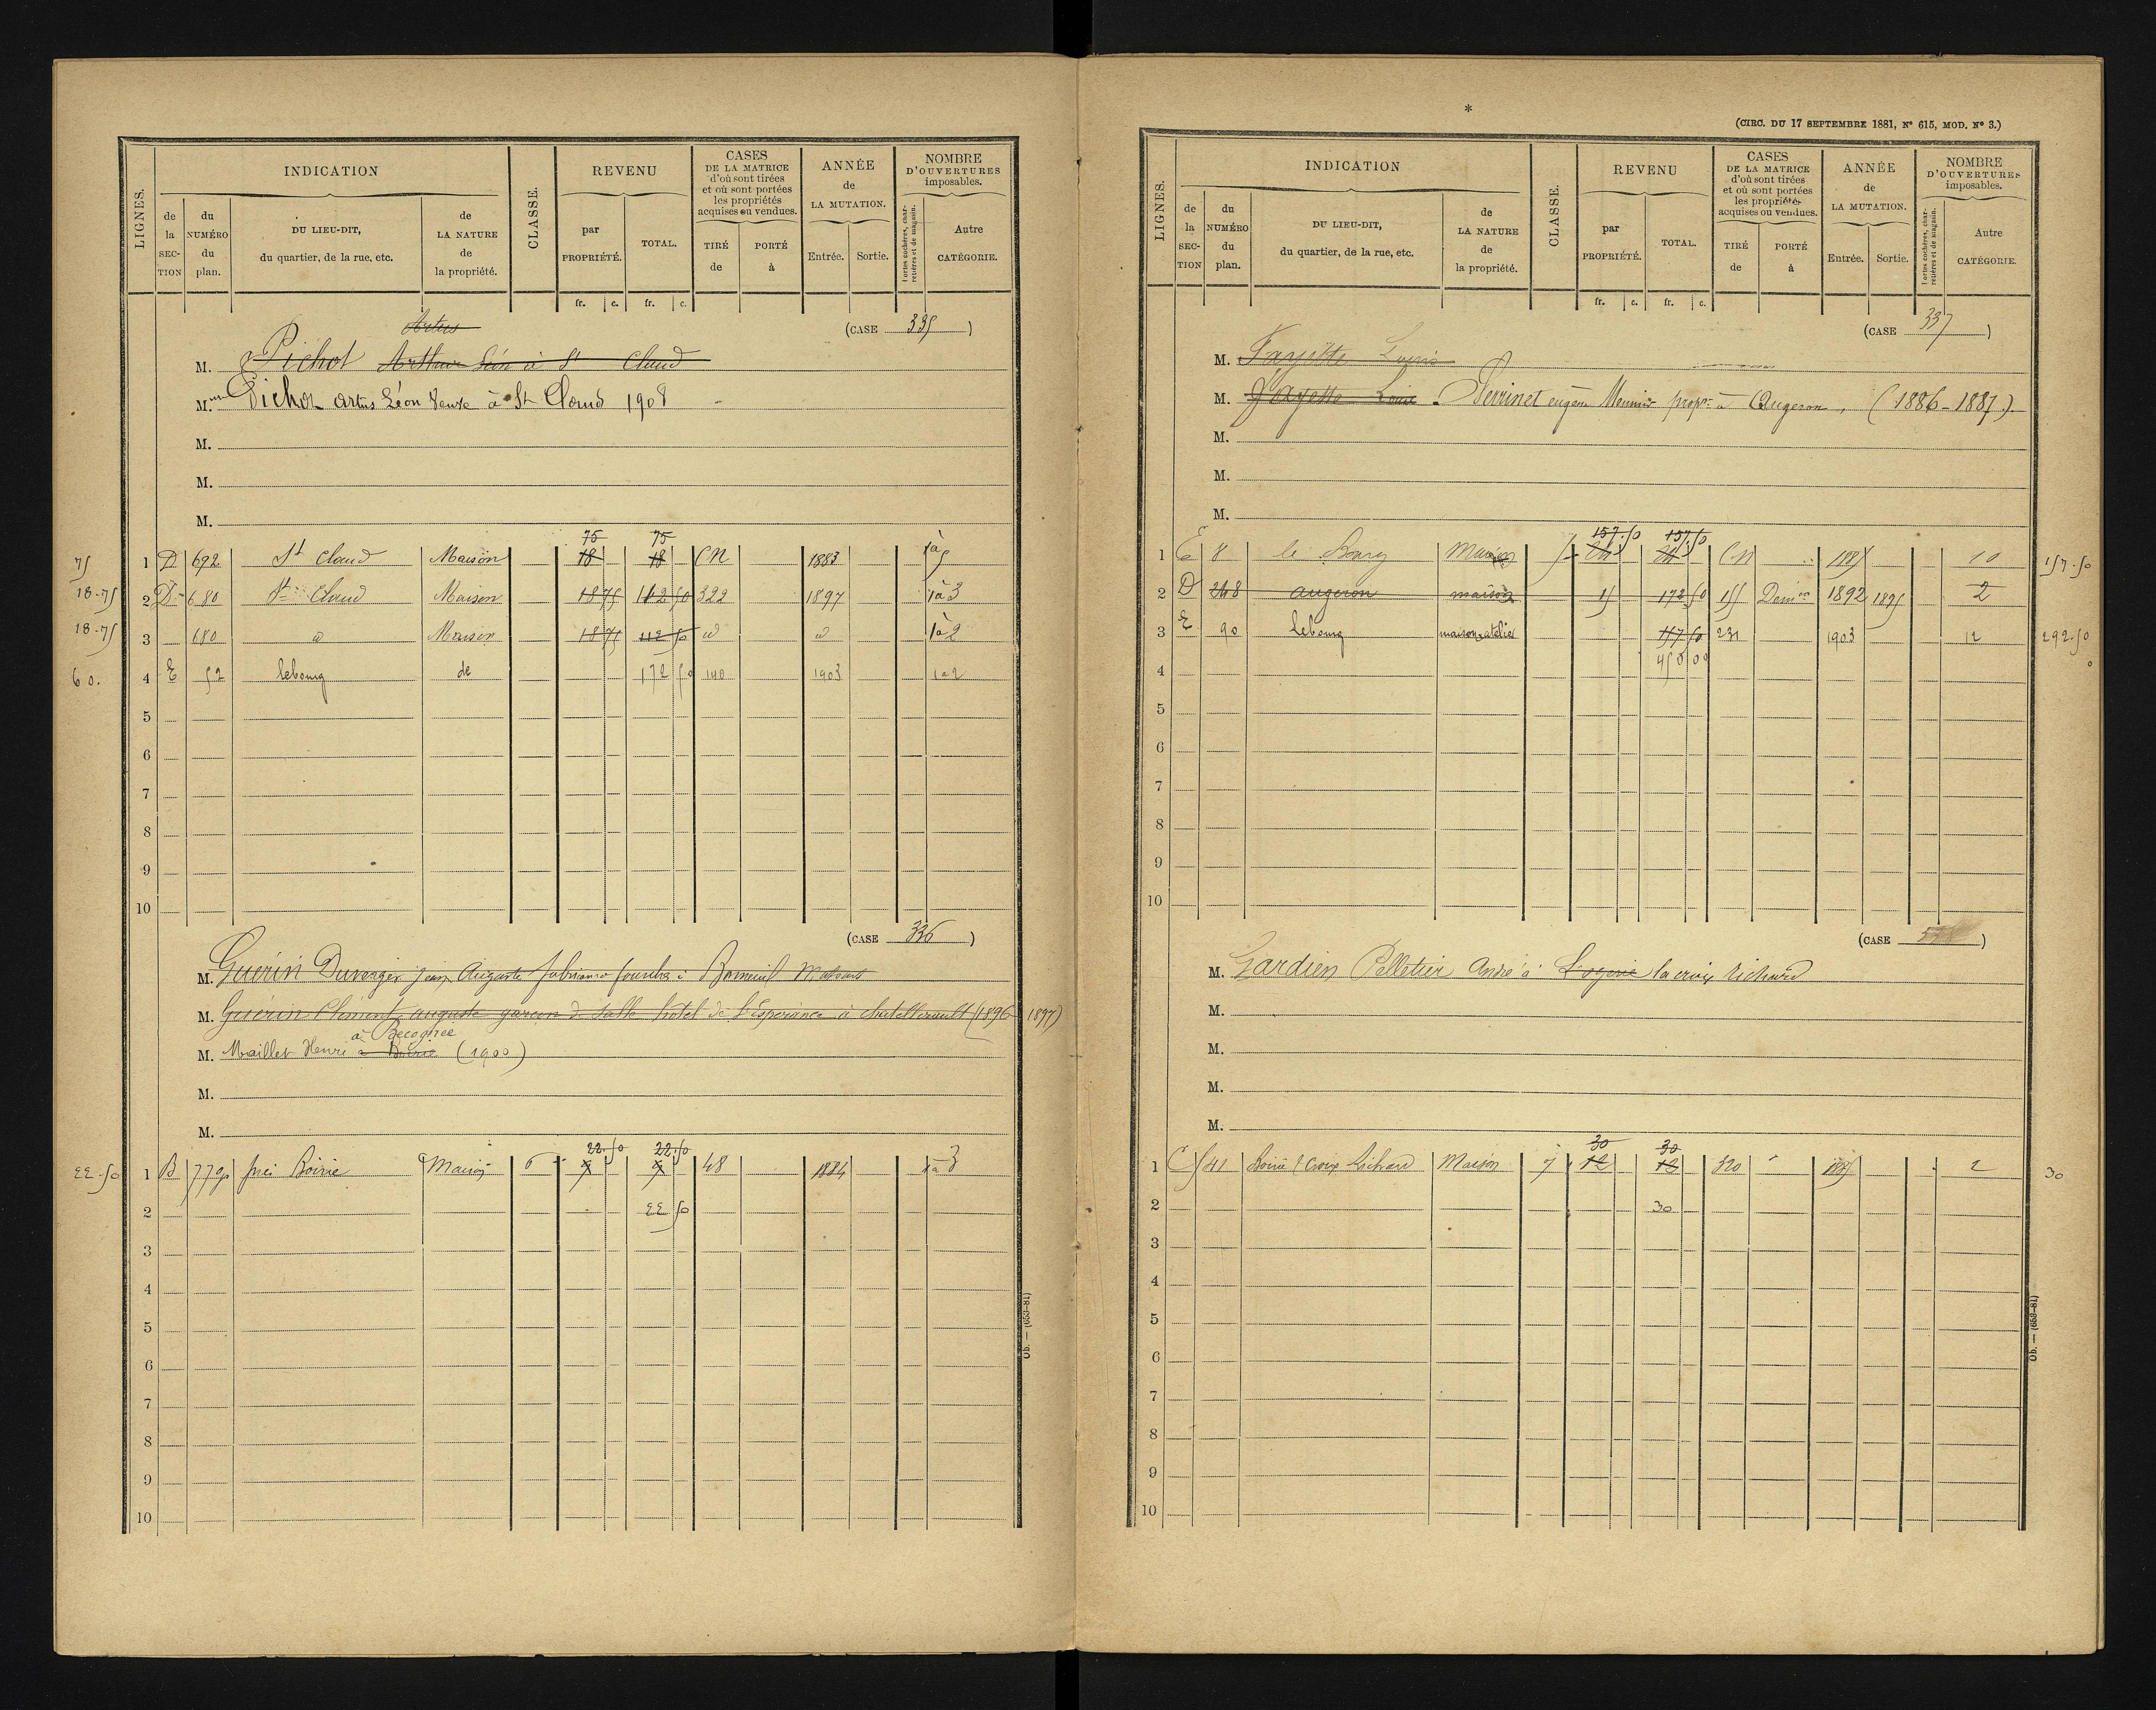 LIGNES.
INDICATION
CLASSE.
REVENU
CASES
DE LA MATRICE
d'où sont tirées
et où sont portées
les propriétés
acquises ou vendues.
ANNÉE
de
LA MUTATION.
NOMBRE
D'OUVERTURES
imposables.
de
la
SEC-
TION
du
NUMÉRO
du
plan.
DU LIEU-DIT,
du quartier, de la rue, etc.
de
LA NATURE
de
la propriété.
par
PROPRIÉTÉ.
TOTAL.
TIRÉ
de
PORTÉ
à
Entrée.
Sortie.
Portes cochères, char-
retières et de magasin.
Autre
CATÉGORIE.
fr. c. fr. c.
(CASE 335)
Artus
M. Pichot Arthur Léon à St Claud
M. Pichot Artus Léon Veuve à St Claud 1908
M.
M.
M.
75 75
75 1 D 692 St Claud Maison 18 18 CN 1883 1 à 5
18.75 2 D 680 St Claud Maison 18 75 112 50 322 1897 1 à 3
18.75 3 680 d Maison 18 75 112 50 d d 1 à 2
60. 4 E 52 lebourg de 172 50 140 1903 1 à 2
5
6
7
8
9
10
(CASE 336)
M. Guérin Duverger Jean Auguste
M. Guérin Clément auguste garçon de salle hotel de l'Espérance à chatellerault (1896-1897)
M. Maillet Henri à Boirie (1900)
M.
M.
22.50 22.50
22.50 1 B 779p Boirie Maison 6 7 7 48 1884 1 à 3
2 22 50
3
4
5
6
7
8
9
10
Ob. — (653-81)
*
(CIRC. DU 17 SEPTEMBRE 1881, N° 615, MOD. N° 3.)
LIGNES.
INDICATION
CLASSE.
REVENU
CASES
DE LA MATRICE
d'où sont tirées
et où sont portées
les propriétés
acquises ou vendues.
ANNÉE
de
LA MUTATION.
NOMBRE
D'OUVERTURES
imposables.
de
la
SEC-
TION
du
NUMÉRO
du
plan.
DU LIEU-DIT,
du quartier, de la rue, etc.
de
LA NATURE
de
la propriété.
par
PROPRIÉTÉ.
TOTAL.
TIRÉ
de
PORTÉ
à
Entrée.
Sortie.
Portes cochères, char-
retières et de magasin.
Autre
CATÉGORIE.
fr. c. fr. c.
(CASE 337)
M. Fayette Louis
M. Fayette Louis. Perrinet eugène Meunier propre à Augeron, (1886-1887).
M.
M.
M.
157.50 157.50
1 E 8 le Bourg Maison CN 1885 10 157.50
2 D 248 augeron maison 15 172 50 15 1892 1895 2
3 E 90 lebourg maison atelier 157 50 231 1903 12 292.50
4 450 00
5
6
7
8
9
10
(CASE)
M. Gardien Pelletier André à Logerie la croix Richard
M.
M.
M.
M.
30 30
1 C 541 Boirie / Croix Richard Maison 7 12 12 320 1885 2 30
2 30
3
4
5
6
7
8
9
10
Ob. — (653-81)